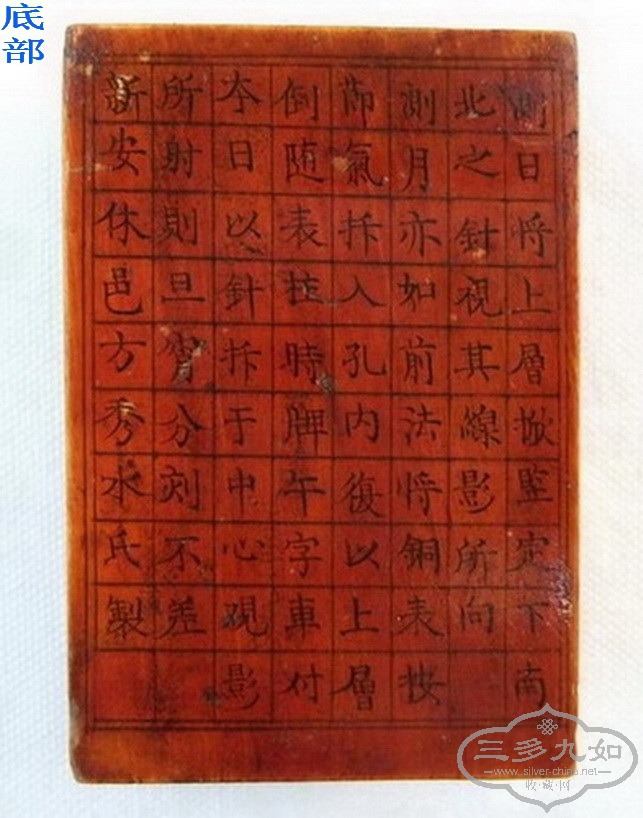 底部
測日将上層掀竪定下南
北之針視其線影所向
測月亦如前法将銅表按
莭氣拆入孔内復以上層
倒随表柱時牌午字車付
夲日以針拆于中心視影
所射則旦宵分刻不差
新安休邑方秀水氏製
三多九如
www.silver-china.net
收·藏·网